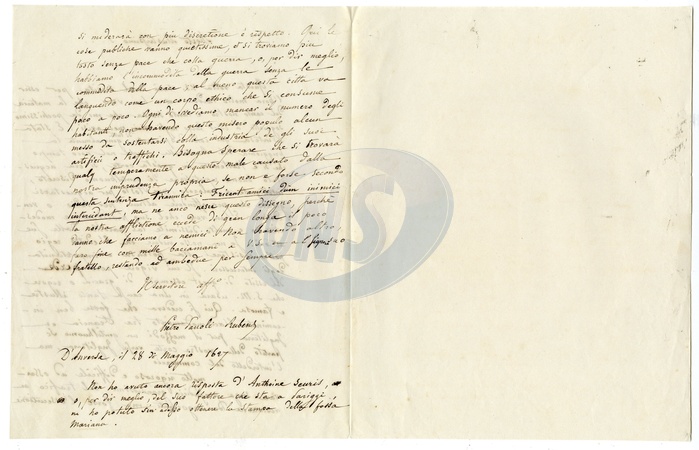 si moderarà con piu discretione è respetto. Qui le
cose publiche vanno quietissime, è si trovamo piu
tosto senza pace che colla guerra, o, per dir meglio,
habbiamo l'incommodita della guerra senza le
commodita della pace al meno questa citta va
languendo come un corpo ethico che si consume
poco a poco. Ogni di vediamo mancar il numero degli
habitanti non havendo questo misero populo alcun
messo da sostentarsi della industria de gli suoi
artificii o traffichi. Bisogna sperare che si trovarà
qualq temperamente a questo male causato dalla
nostra imprudenza propria se non e forse secondo
questa sentenza tirannica: Pereant amici dum inimici
intercidant, ma ne anco nesce questo dissegno, perche
la nostra afflictione excede di gran longa il poco
danno che facciamo a nemici. Non havendo altro,
faro fine con mille baciamani a V. S. e al sigre suo
fratello, restando ad ambedue per sempre
Servitore affo
Pietro Pauolo Rubens
D'Anversa, il 28 di Maggio 1627
Non ho avuto ancora risposta d'Anthoine Souris,
o, per dir meglio, del suo fattore che sta a Pariggi,
ni ho potuto sin adesso ottener la stampa della fossa
Mariana.
NS